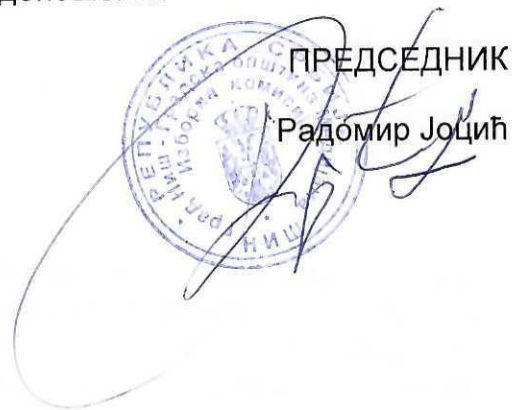 ПРЕДСЕДНИК
Радомир Јоцић
РЕПУБЛИКА
Град Ниш - Градска општина
Изборна комисија
НИШ